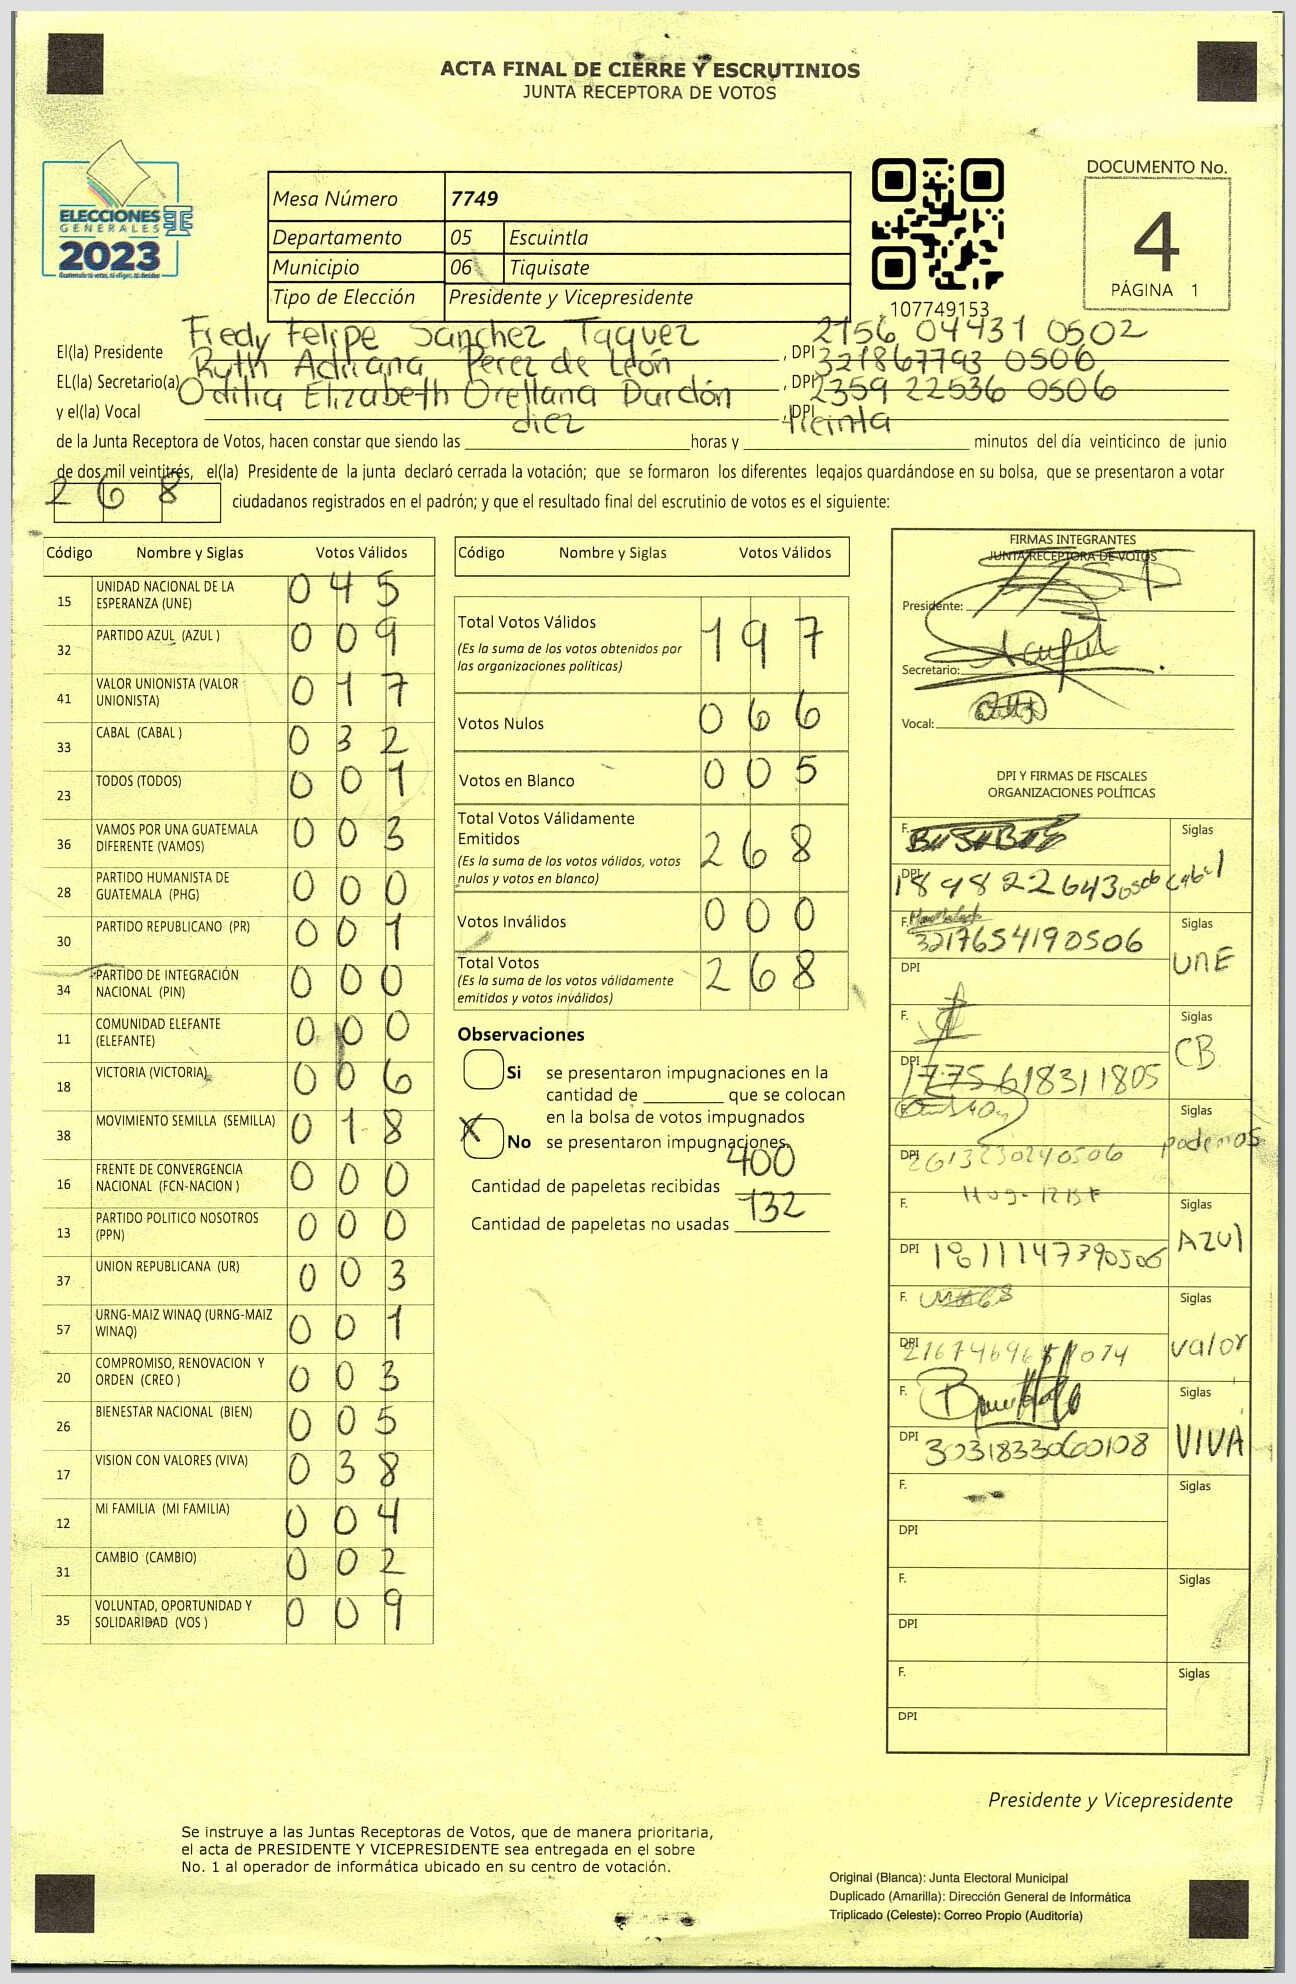 ACTA FINAL DE CIERRE Y ESCRUTINIOS
JUNTA RECEPTORA DE VOTOS
ELECCIONES
GENERALES
2023
Mesa Número 7749
Departamento 05 Escuintla
Municipio 06 Tiquisate
Tipo de Elección Presidente y Vicepresidente
107749153
DOCUMENTO No.
4
PÁGINA 1
El(la) Presidente Fredy Felipe Sánchez Taquez , DPI 2156 04431 0502
EL(la) Secretario(a) Ruth Adriana Pérez de León , DPI 321867793 0506
y el(la) Vocal Odilia Elizabeth Orellana Dardón , DPI 2359 22536 0506
de la Junta Receptora de Votos, hacen constar que siendo las diez horas y treinta minutos del día veinticinco de junio
de dos mil veintitrés, el(la) Presidente de la junta declaró cerrada la votación; que se formaron los diferentes legajos guardándose en su bolsa, que se presentaron a votar
268 ciudadanos registrados en el padrón; y que el resultado final del escrutinio de votos es el siguiente:
Código Nombre y Siglas Votos Válidos
15 UNIDAD NACIONAL DE LA ESPERANZA (UNE) 045
32 PARTIDO AZUL (AZUL ) 009
41 VALOR UNIONISTA (VALOR UNIONISTA) 017
33 CABAL (CABAL ) 032
23 TODOS (TODOS) 001
36 VAMOS POR UNA GUATEMALA DIFERENTE (VAMOS) 003
28 PARTIDO HUMANISTA DE GUATEMALA (PHG) 000
30 PARTIDO REPUBLICANO (PR) 001
34 PARTIDO DE INTEGRACIÓN NACIONAL (PIN) 000
11 COMUNIDAD ELEFANTE (ELEFANTE) 000
18 VICTORIA (VICTORIA) 006
38 MOVIMIENTO SEMILLA (SEMILLA) 018
16 FRENTE DE CONVERGENCIA NACIONAL (FCN-NACION ) 000
13 PARTIDO POLITICO NOSOTROS (PPN) 000
37 UNION REPUBLICANA (UR) 003
57 URNG-MAIZ WINAQ (URNG-MAIZ WINAQ) 001
20 COMPROMISO, RENOVACION Y ORDEN (CREO ) 003
26 BIENESTAR NACIONAL (BIEN) 005
17 VISION CON VALORES (VIVA) 038
12 MI FAMILIA (MI FAMILIA) 004
31 CAMBIO (CAMBIO) 002
35 VOLUNTAD, OPORTUNIDAD Y SOLIDARIDAD (VOS ) 009
Código Nombre y Siglas Votos Válidos
Total Votos Válidos 197
(Es la suma de los votos obtenidos por
las organizaciones políticas)
Votos Nulos 066
Votos en Blanco 005
Total Votos Válidamente
Emitidos 268
(Es la suma de los votos válidos, votos
nulos y votos en blanco)
Votos Inválidos 000
Total Votos 268
(Es la suma de los votos válidamente
emitidos y votos inválidos)
Observaciones
Si se presentaron impugnaciones en la
cantidad de ________ que se colocan
en la bolsa de votos impugnados
X No se presentaron impugnaciones
Cantidad de papeletas recibidas 400
Cantidad de papeletas no usadas 132
FIRMAS INTEGRANTES
JUNTA RECEPTORA DE VOTOS
Presidente:
Secretario:
Vocal:
DPI Y FIRMAS DE FISCALES
ORGANIZACIONES POLÍTICAS
F. Siglas
DPI 1898226430506 Cabal
F. Siglas
3217654190506 UNE
DPI
F. Siglas
DPI 1775618311805 CB
F. Siglas
DPI 2613230240506 podemos
F. Siglas
DPI 1811147390506 AZUl
F. Siglas
DPI valor
F. Siglas
DPI 3031833060108 VIVA
F. Siglas
DPI
F. Siglas
DPI
F. Siglas
DPI
Presidente y Vicepresidente
Se instruye a las Juntas Receptoras de Votos, que de manera prioritaria,
el acta de PRESIDENTE Y VICEPRESIDENTE sea entregada en el sobre
No. 1 al operador de informática ubicado en su centro de votación.
Original (Blanca): Junta Electoral Municipal
Duplicado (Amarilla): Dirección General de Informática
Triplicado (Celeste): Correo Propio (Auditoría)